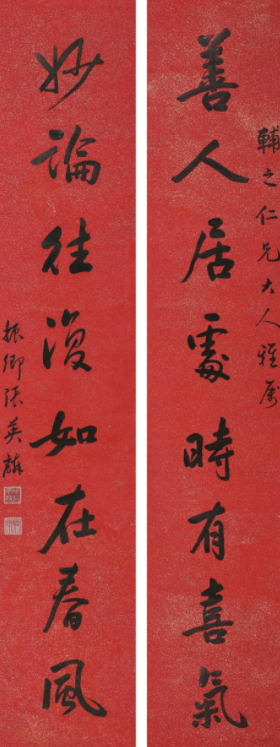 輔之仁兄大人雅屬
善人居處時有喜氣
妙論往復如在春風
振卿張英麟